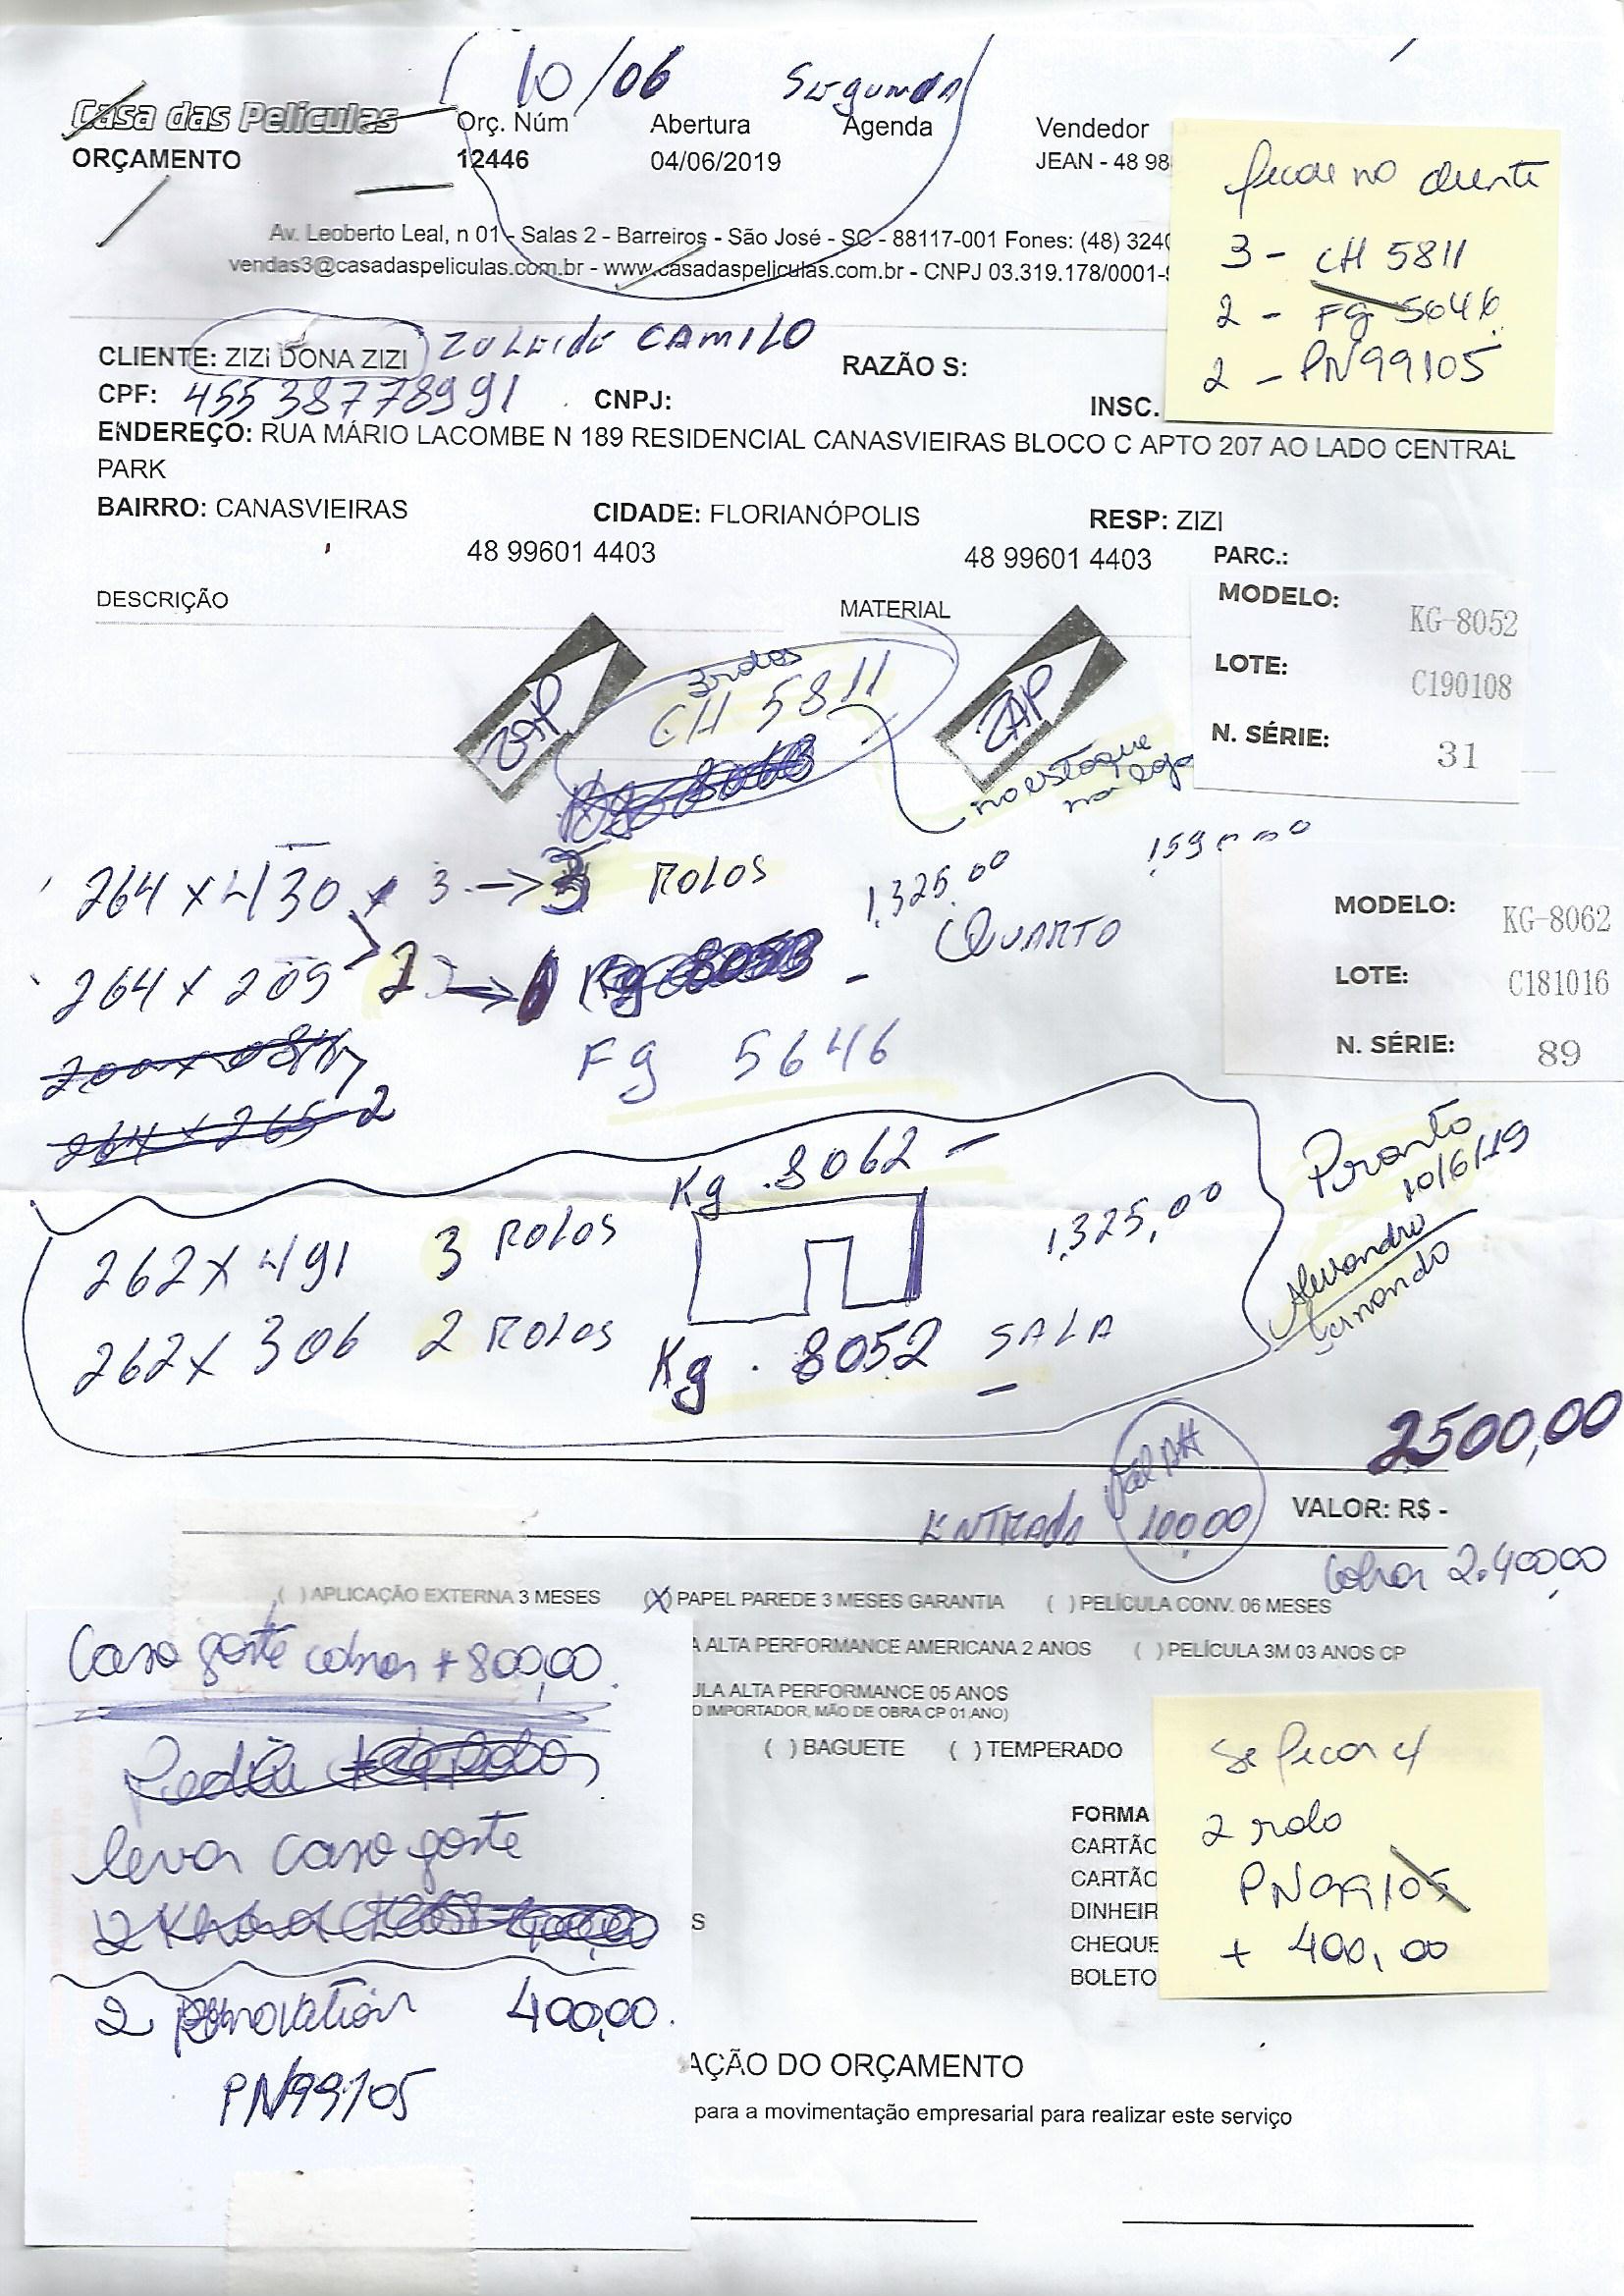 10/06 Segunda
Casa das Películas
Orç. Núm Abertura Agenda Vendedor
ORÇAMENTO 12446 04/06/2019 JEAN - 48 98
Av. Leoberto Leal, n 01 - Salas 2 - Barreiros - São José - SC - 88117-001 Fones: (48) 324
vendas3@casadaspeliculas.com.br - www.casadaspeliculas.com.br - CNPJ 03.319.178/0001-
no cliente
3 - CH 5811
2 - Fg 5646
2 - PN99105
CLIENTE: ZIZI DONA ZIZI ZULEIDE CAMILO RAZÃO S:
CPF: 45538778991 CNPJ: INSC.
ENDEREÇO: RUA MÁRIO LACOMBE N 189 RESIDENCIAL CANASVIEIRAS BLOCO C APTO 207 AO LADO CENTRAL
PARK
BAIRRO: CANASVIEIRAS CIDADE: FLORIANÓPOLIS RESP: ZIZI
48 99601 4403 48 99601 4403 PARC.:
DESCRIÇÃO MATERIAL
MODELO: KG-8052
LOTE: C190108
N. SÉRIE: 31
ZAP 3 rolos ZAP
CH 5811
no estoque
na loja
264 x 430 x 3 -> 3 ROLOS 1.325,00
QUARTO
264 x 209
Fg 5646
264 x 265 2
MODELO: KG-8062
LOTE: C181016
N. SÉRIE: 89
Kg. 8062 -
262 x 491 3 ROLOS 1.325,00
262 x 306 2 ROLOS Kg. 8052 - SALA
Pronto
10/6/19
Alexandro
Fernando
2500,00
ENTRADA 100,00 VALOR: R$ -
Cobrar 2.400,00
( ) APLICAÇÃO EXTERNA 3 MESES (X) PAPEL PAREDE 3 MESES GARANTIA ( ) PELÍCULA CONV. 06 MESES
A ALTA PERFORMANCE AMERICANA 2 ANOS ( ) PELÍCULA 3M 03 ANOS CP
ULA ALTA PERFORMANCE 05 ANOS
O IMPORTADOR, MÃO DE OBRA CP 01 ANO)
( ) BAGUETE ( ) TEMPERADO
Caso goste cobrar + 800,00.
levar caso goste
2 Renovation 400,00.
PN99105
FORMA
CARTÃO
CARTÃO
DINHEIR
S
CHEQUE
BOLETO
Se ficar c/
2 rolo
PN99105
+ 400,00
AÇÃO DO ORÇAMENTO
para a movimentação empresarial para realizar este serviço